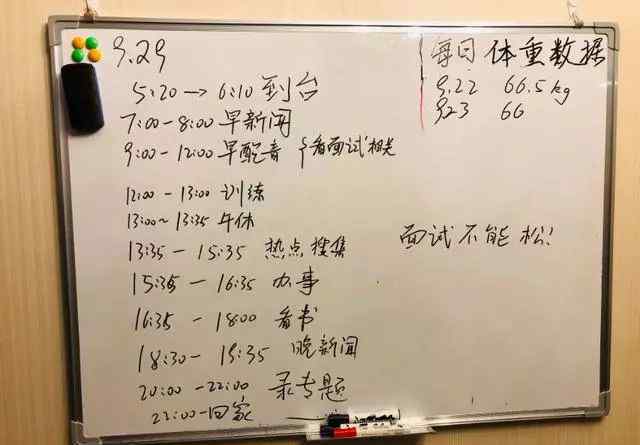 9.29
5:20→6:10 到台
7:00-8:00 早新闻
9:00-12:00 早配音 看面试相关
12:00-13:00 训练
13:00~13:35 午休
13:35-15:35 热点搜集
15:35-16:35 办事
16:35-18:00 看书
18:30-19:35 晚新闻
20:00-22:00 录专题
22:00-回家
每日体重数据
9.22 66.5kg
9.23 66
面试不能松!